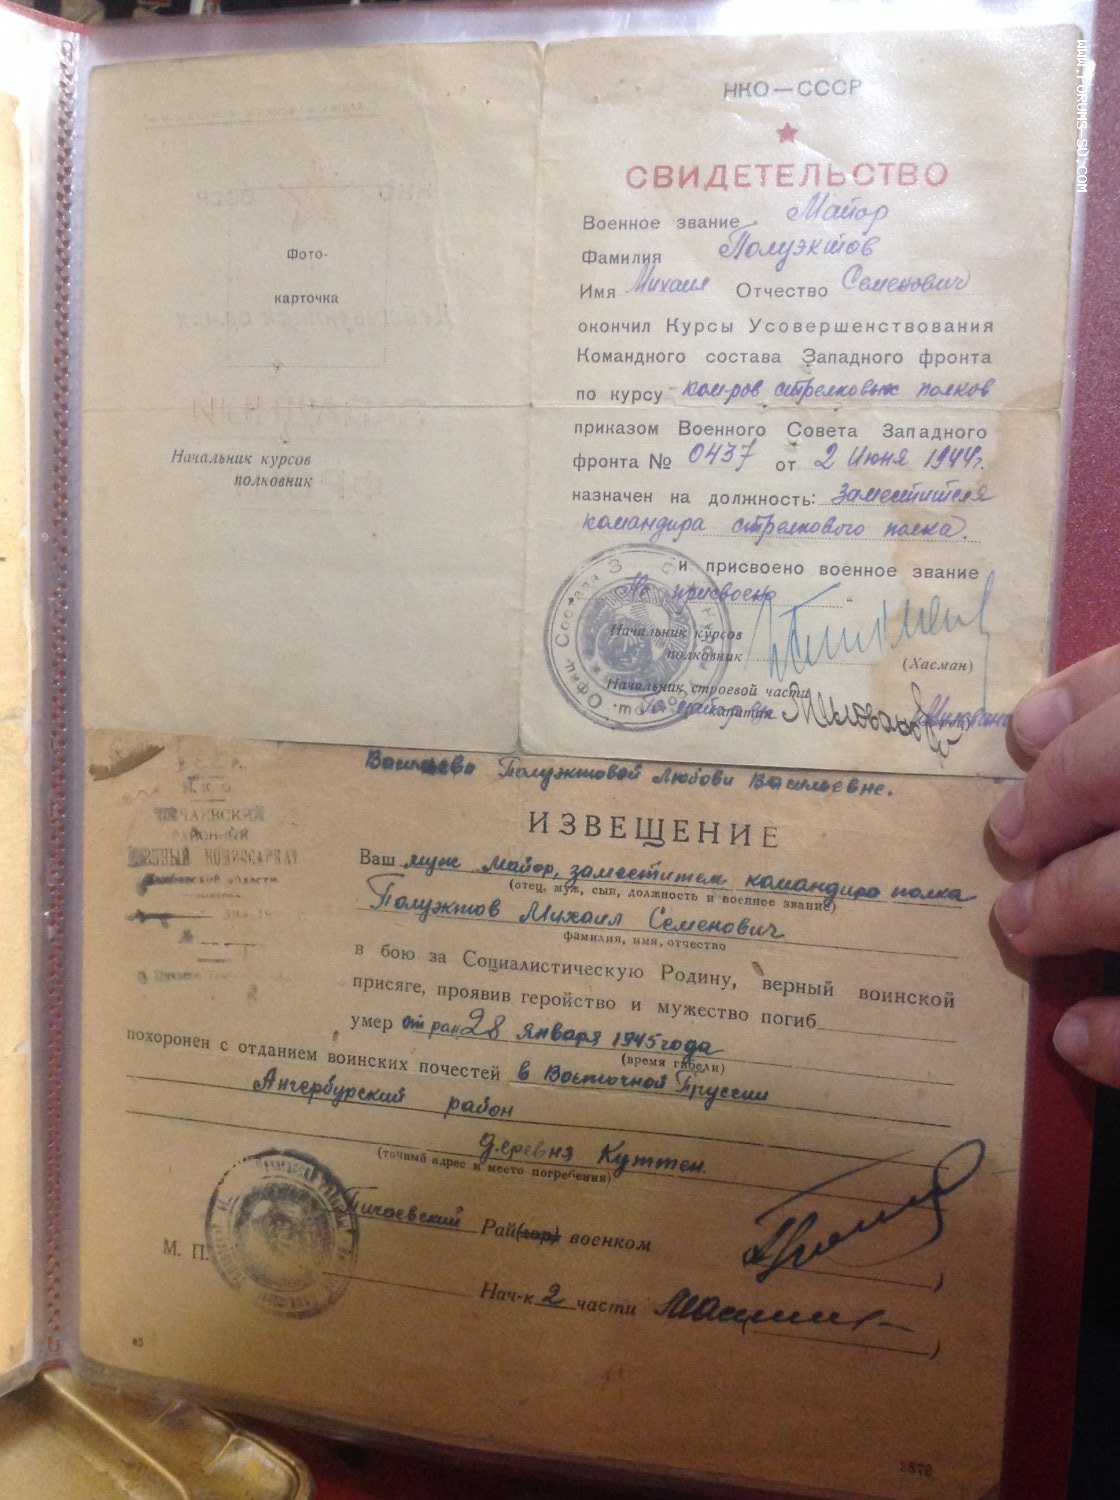 WWW.FORUMS-SU.COM
Фото-
карточка
Начальник курсов
полковник
НКО—СССР
СВИДЕТЕЛЬСТВО
Военное звание Майор
Фамилия Полуэктов
Имя Михаил Отчество Семенович
окончил Курсы Усовершенствования
Командного состава Западного фронта
по курсу ком-ров стрелковых полков
приказом Военного Совета Западного
фронта № 0437 от 2 Июня 1944г.
назначен на должность: Заместителя
командира стрелкового полка.
и присвоено военное звание
Не присвоено
Начальник курсов
полковник (Хасман)
Начальник строевой части
капитан
Полуэктовой Любови Васильевне.
ИЗВЕЩЕНИЕ
Ваш муж Майор, заместитель командира полка
(отец, муж, сын, должность и военное звание)
Полуэктов Михаил Семенович
фамилия, имя, отчество
в бою за Социалистическую Родину, верный воинской
присяге, проявив геройство и мужество погиб
умер от ран 28 января 1945 года
(время гибели)
похоронен с отданием воинских почестей в Восточной Пруссии
Ангербурский район
деревня Куттен.
(точный адрес и место погребения)
Пичаевский Рай(гор) военком
М. П.
Нач-к 2 части